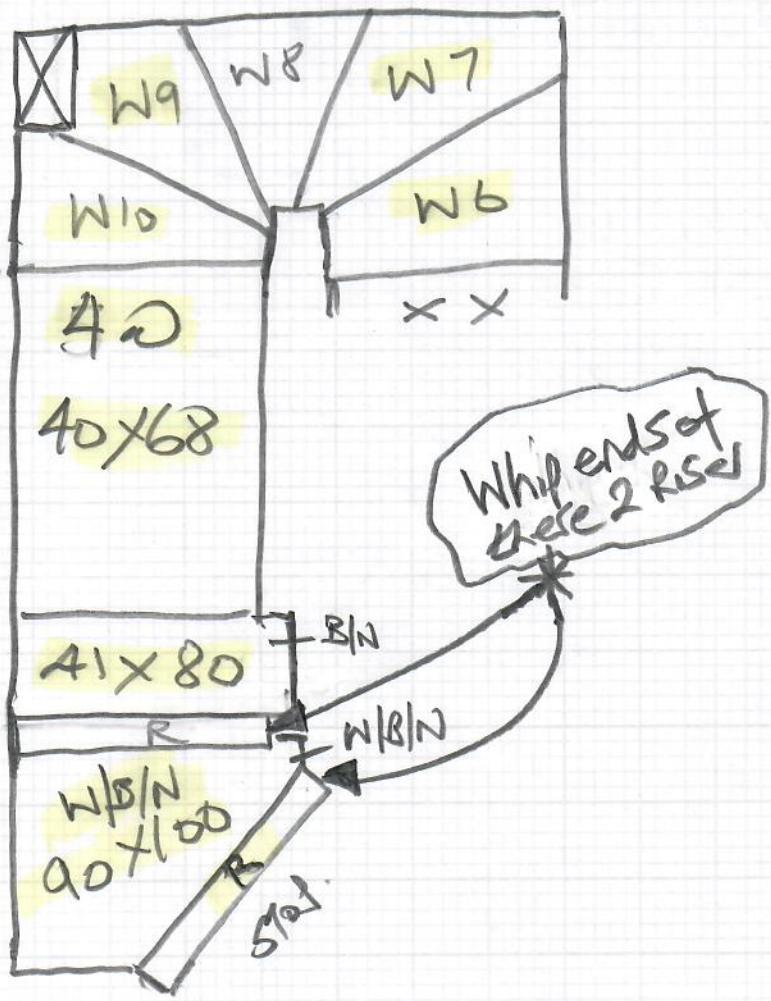 W9
W8
W7
W10
W6
X X
40
40X68
Whip ends at
these 2 Riser
B/N
41X80
R
W/B/N
W/B/N
90X100
R